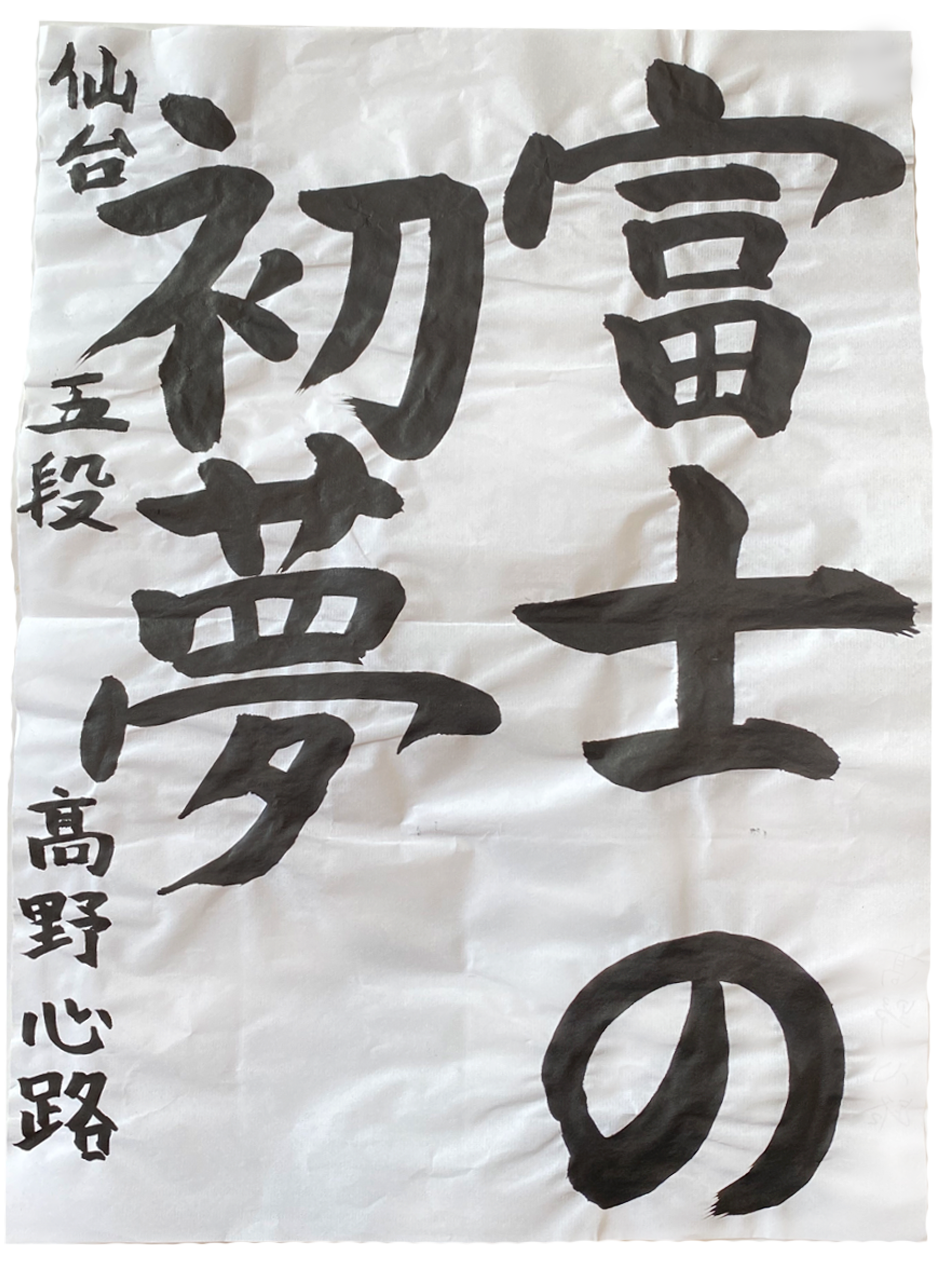 富士の
初夢
仙台 五段 高野心路